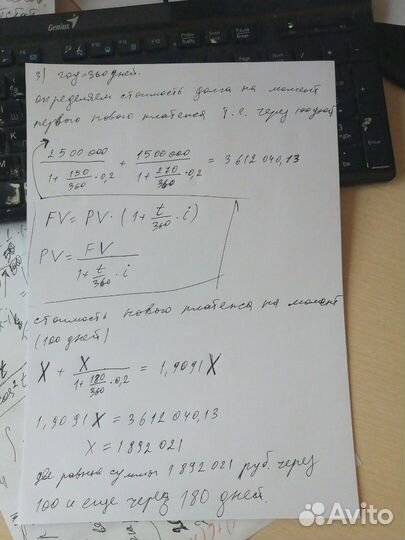 Genius
3) год=360 дней.
определяем стоимость долга на момент
первого нового платежа т.е. через 100 дней
2500 000 / (1 + 150/360 · 0.2) + 1500 000 / (1 + 270/360 · 0,2) = 3 612 040,13
FV = PV · (1 + t/360 · i)
PV = FV / (1 + t/360 · i)
стоимость нового платежа на момент
(100 дней)
X + X / (1 + 180/360 · 0,2) = 1,9091X
1,9091X = 3612 040,13
X = 1892 021
две равные суммы 1 892 021 руб. через
100 и еще через 180 дней.
Avito